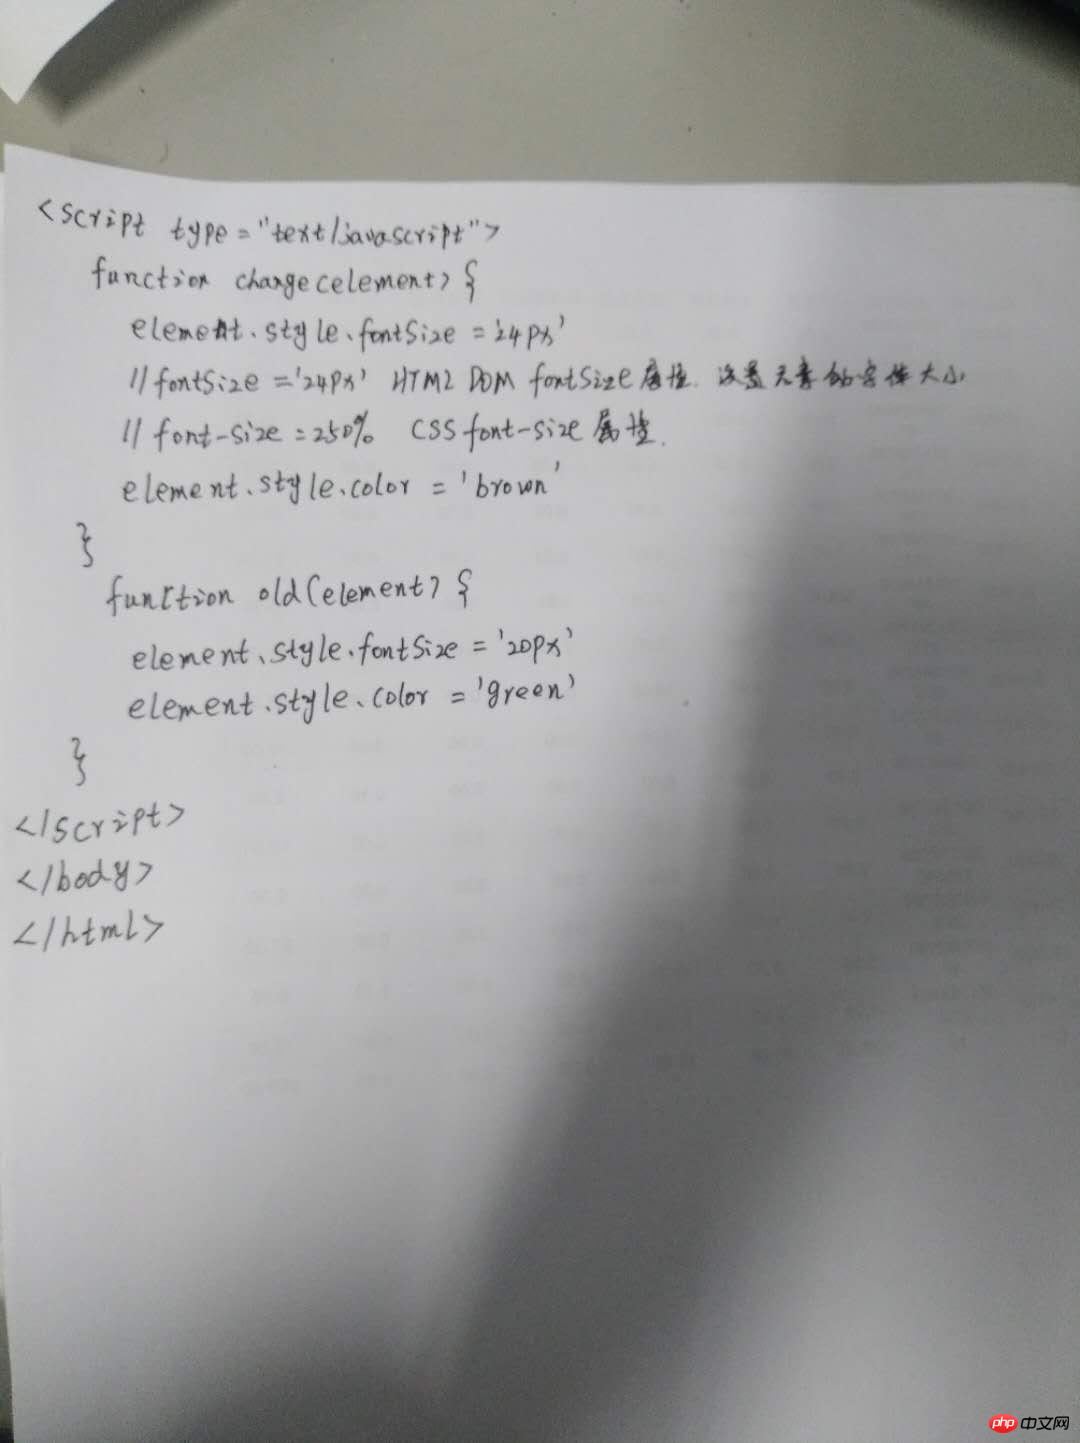 <script type="text/javascript">
function change(element) {
element.style.fontSize = '24px'
//fontSize = '24px' HTML DOM fontSize 属性. 设置元素的字体大小
//font-size = 250% CSS font-size 属性.
element.style.color = 'brown'
}
function old(element) {
element.style.fontSize = '20px'
element.style.color = 'green'
}
</script>
</body>
</html>
php 中文网